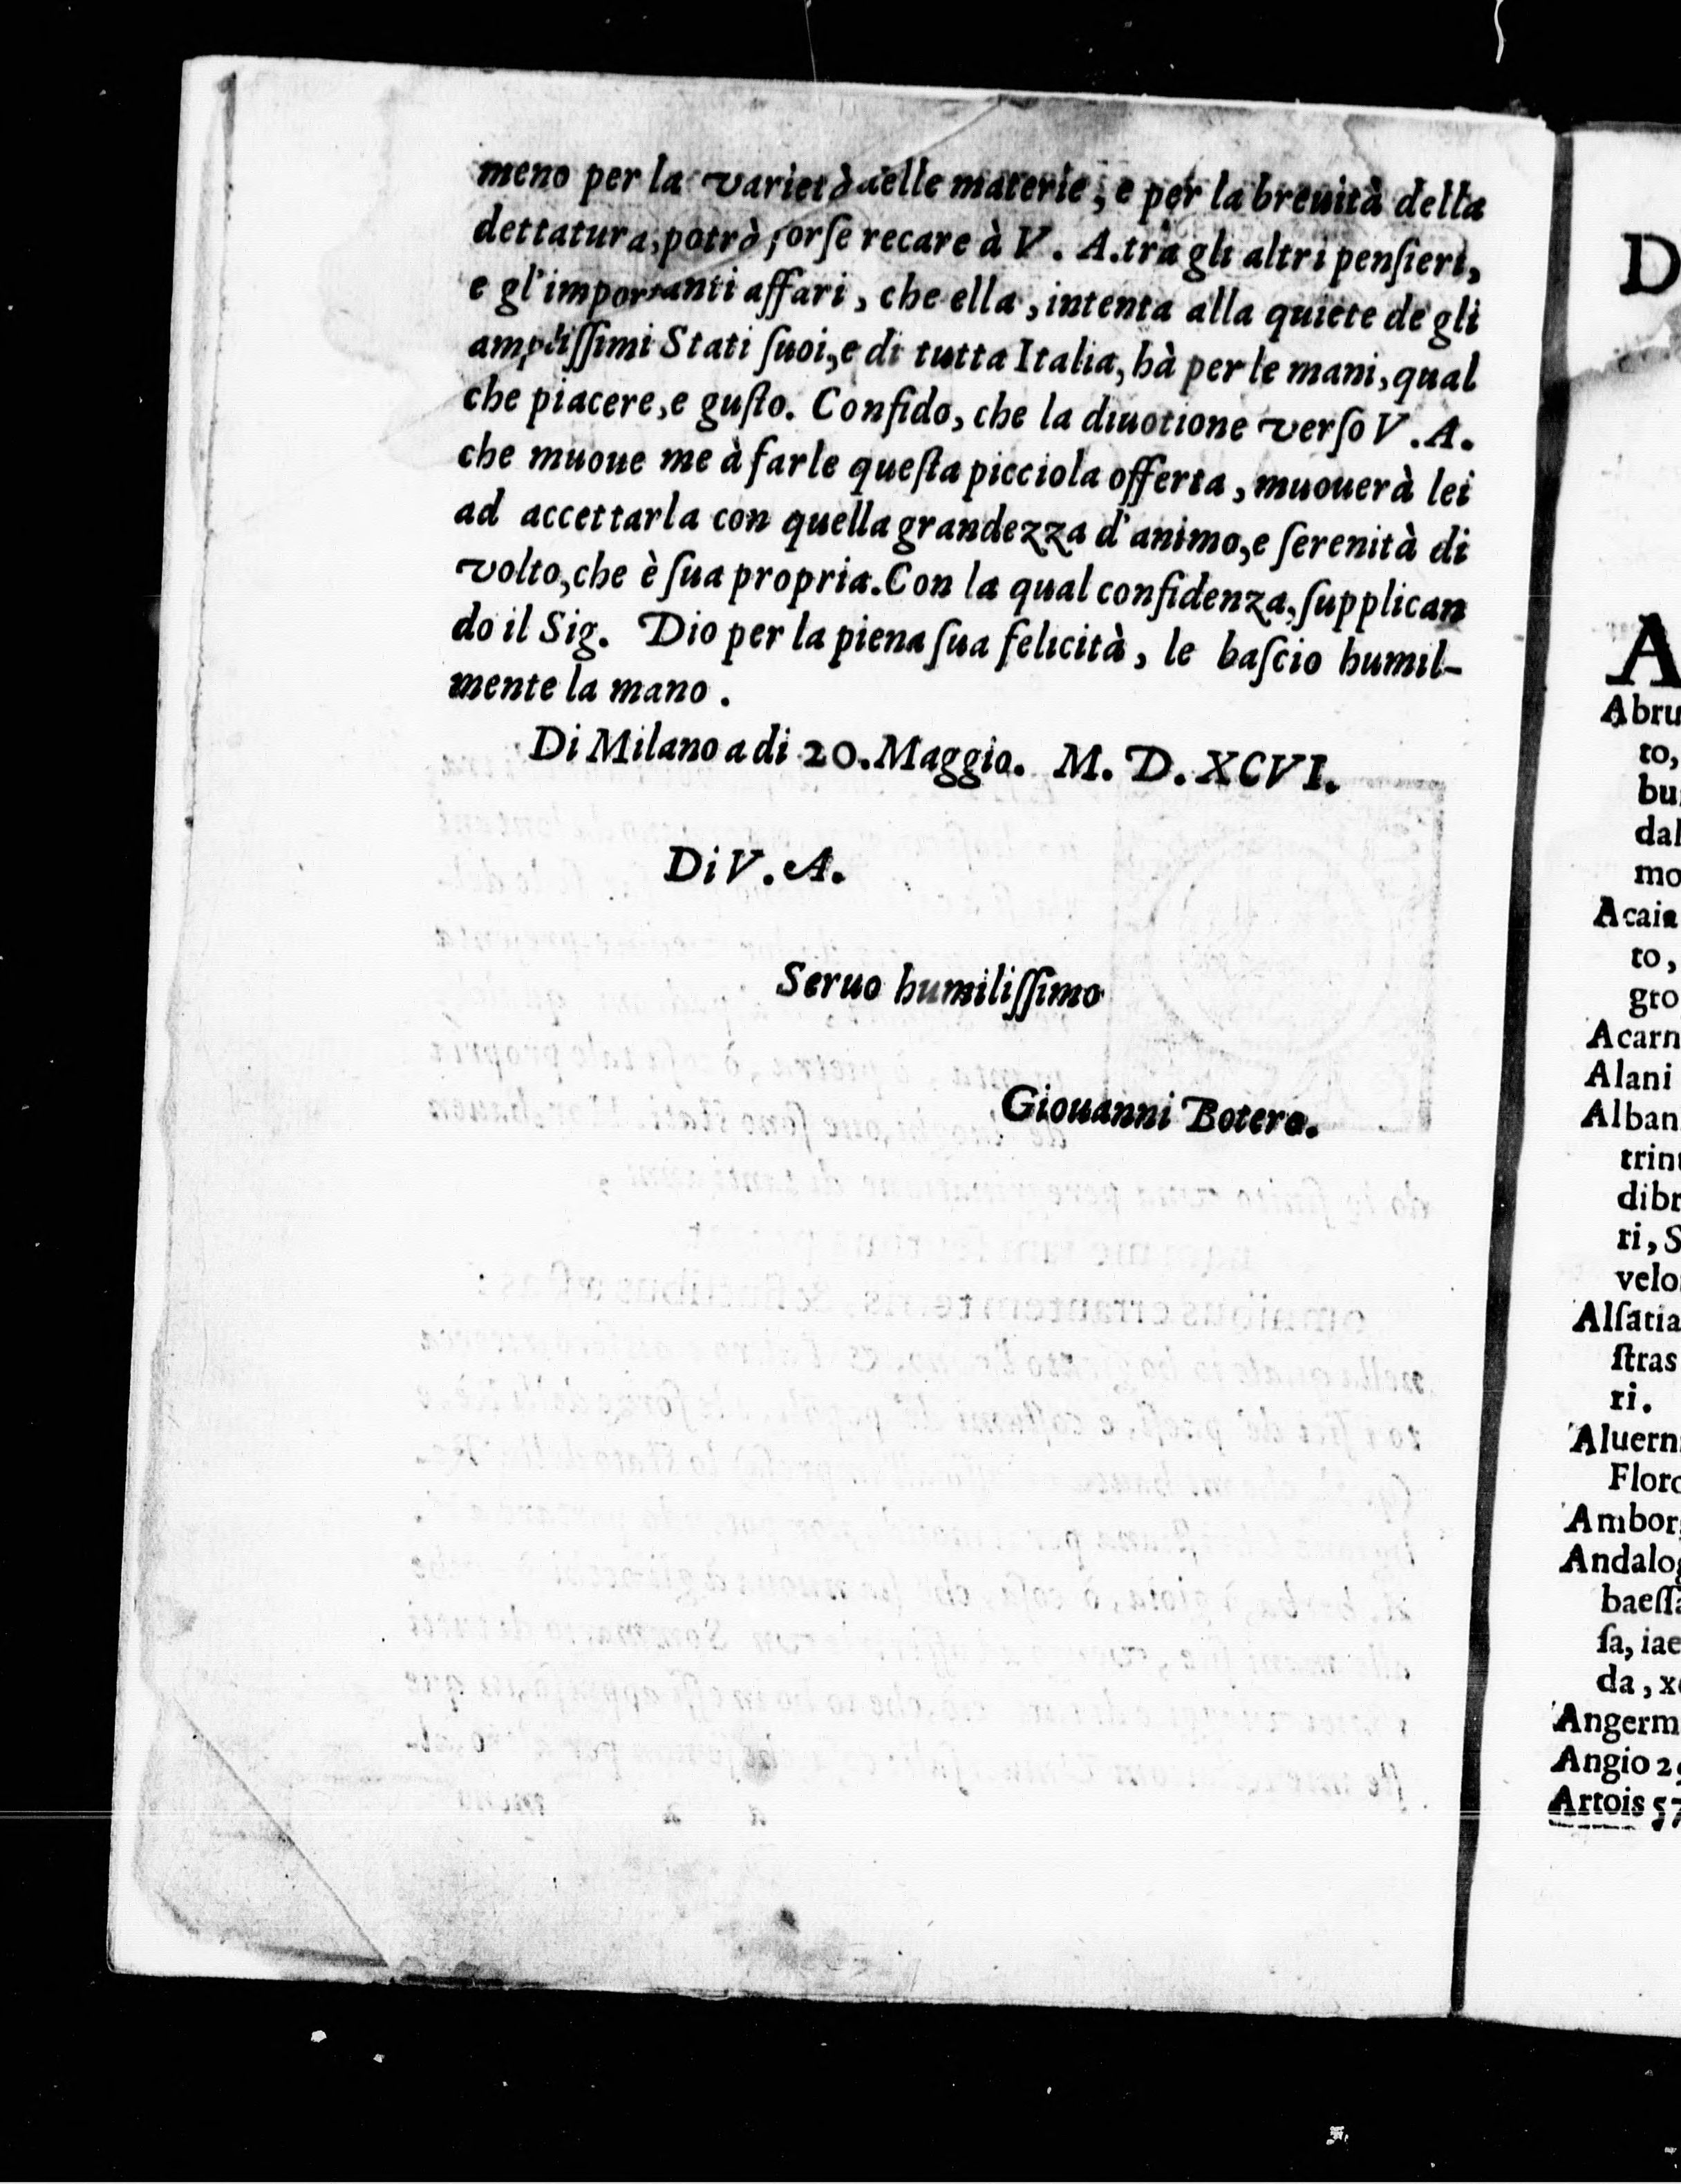 meno per la varietà delle materie, e per la breuità della
dettatura, potrò forſe recare à V. A. trà gli altri penſieri,
e gl'importanti affari, che ella, intenta alla quiete de gli
ampliſſimi Stati ſuoi, e di tutta Italia, hà per le mani, qual
che piacere, e guſto. Confido, che la diuotione verſo V. A.
che muoue me à farle queſta picciola offerta, muouerà lei
ad accettarla con quella grandezza d'animo, e ſerenità di
volto, che è ſua propria. Con la qual confidenza, ſupplican
do il Sig. Dio per la piena ſua felicità, le baſcio humil-
mente la mano.
Di Milano a di 20. Maggio. M. D. XCVI.
Di V. A.
Seruo humiliſſimo
Giouanni Botero.
D
A
Abru
to,
bu
dal
mo
Acaia
to,
gro
Acarn
Alani
Alban
trin
dibr
ri, S
velo
Alſatia
ſtras
ri.
Aluern
Floro
Ambor
Andalog
baeſſa
ſa, iae
da, x
Angerm
Angio 2
Artois 57